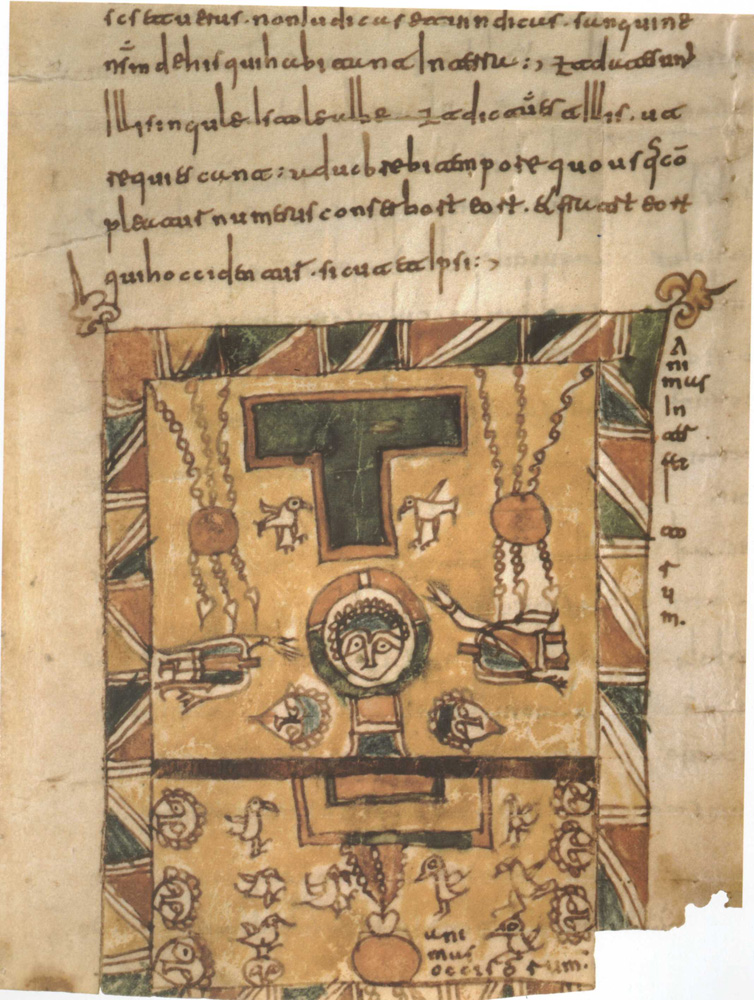 scs et uerus. non iudicas et uindicas. sanguine
nsm de his qui habitant In terra :, et date sunt
Illis singule stole albe et dictu est Illis. ut
requiescant : adhuc brebi tempore quousq co
pleatur numerus conserborum eorum. et fratrum eorum
qui occidentur. sicut et Ipsi :,
A
ni
mas
In
ter
fec
to
r
u
m.
ani
mas
occisorum.